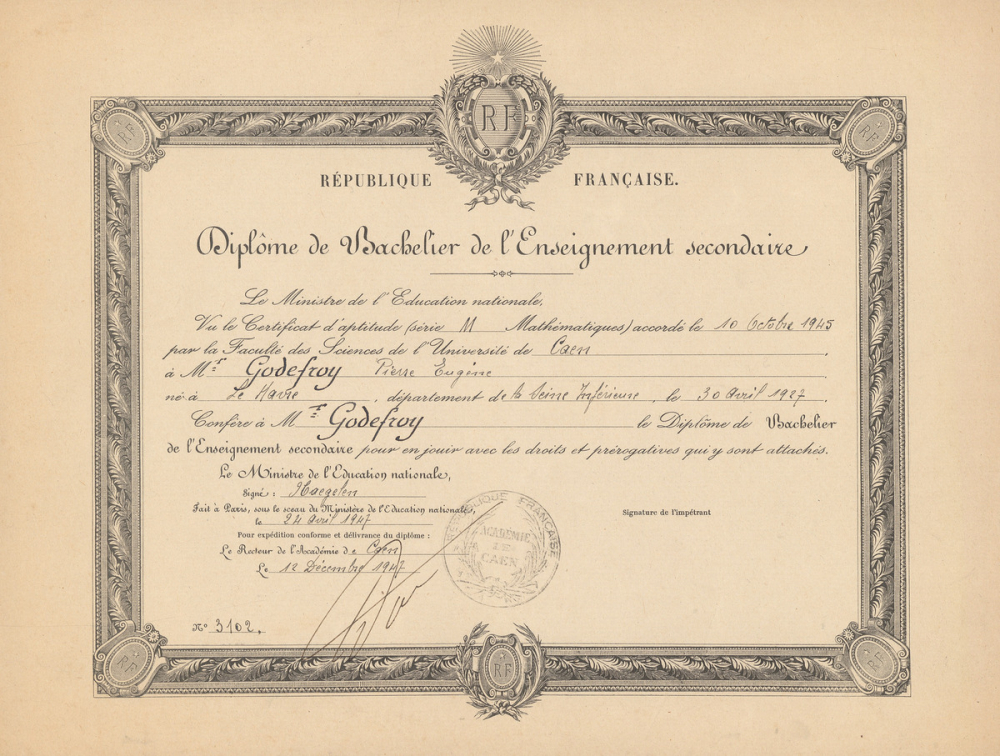 RF
RF
RF
RÉPUBLIQUE FRANÇAISE.
Diplôme de Bachelier de l'Enseignement secondaire
Le Ministre de l'Education nationale,
Vu le Certificat d'aptitude (série M Mathématiques) accordé le 10 Octobre 1945
par la Faculté des Sciences de l'Université de Caen.
à Mr Godefroy Pierre Eugène
né à Le Havre, département de la Seine Inférieure, le 30 Avril 1927.
Confère à Mr Godefroy le Diplôme de Bachelier
de l'Enseignement secondaire pour en jouir avec les droits et prérogatives qui y sont attachés.
Le Ministre de l'Education nationale,
Signé : Naegelen
Fait à Paris, sous le sceau du Ministère de l'Education nationale,
le 24 Avril 1947
Signature de l'impétrant
Pour expédition conforme et délivrance du diplôme :
Le Recteur de l'Académie de Caen
Le 12 Décembre 1947
RÉPUBLIQUE FRANÇAISE
ACADÉMIE
DE
CAEN
N° 3102.
RF
RF
RF